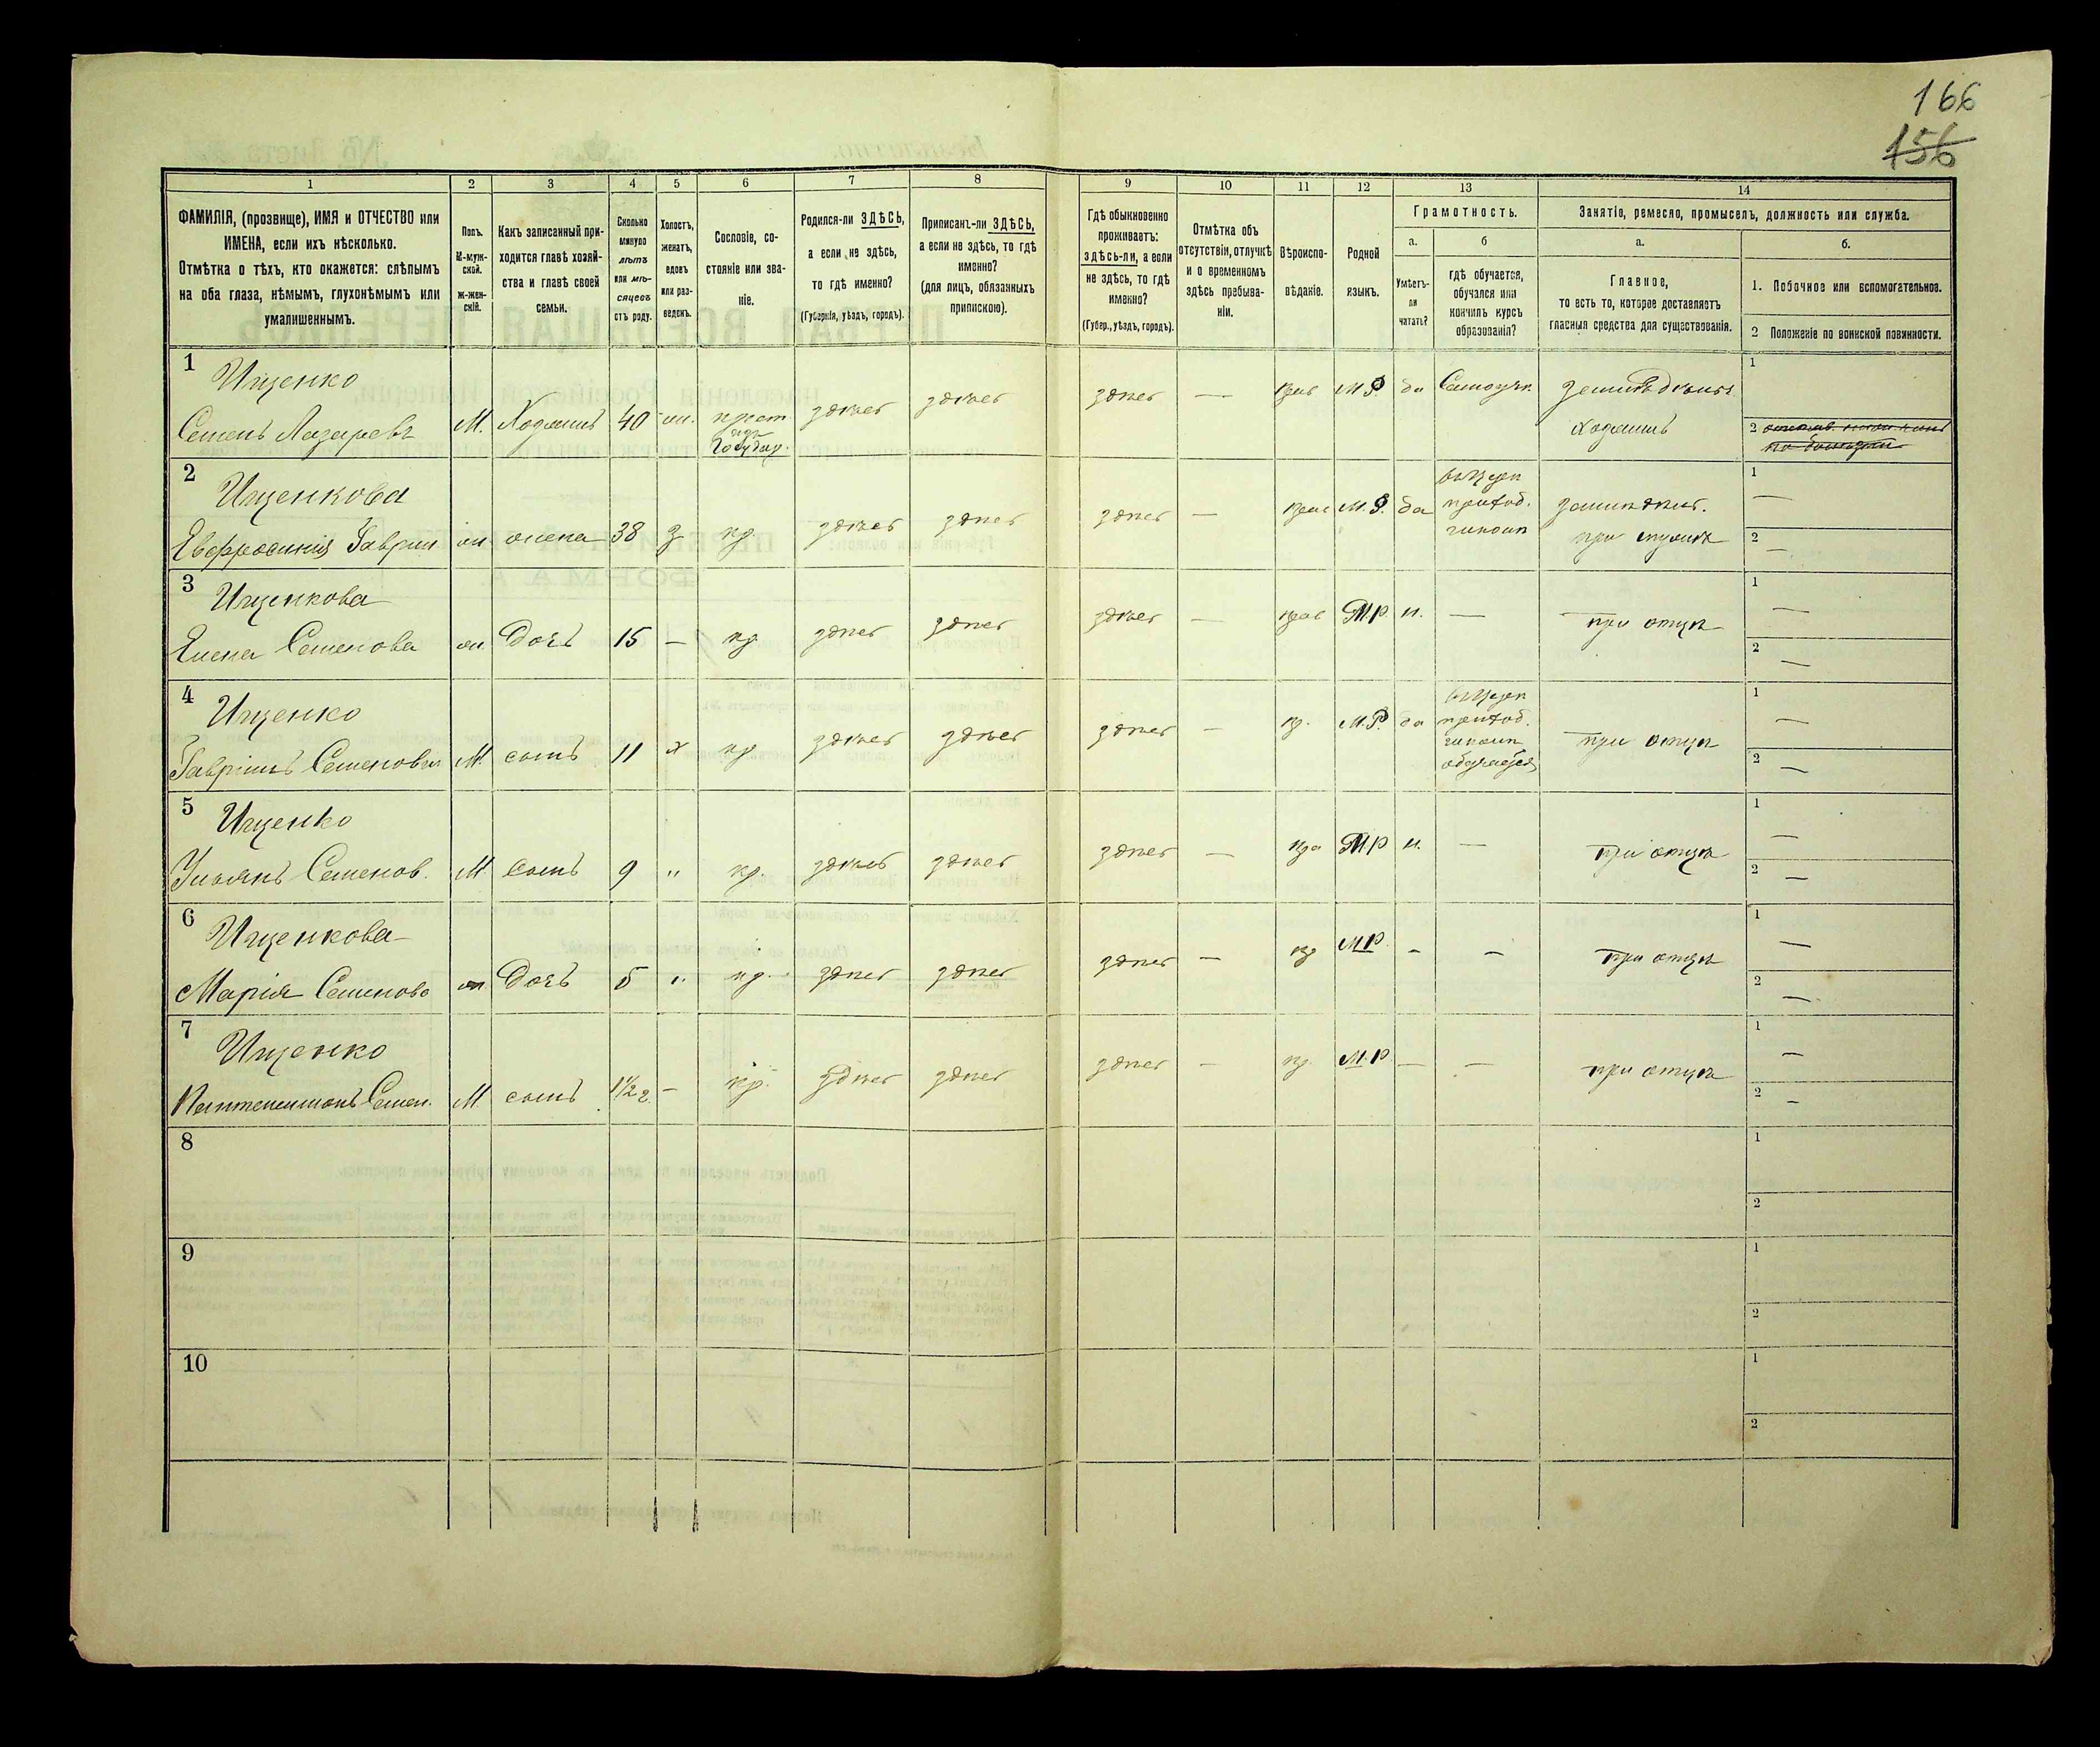 166
156
1
2
3
4
5
6
7
8
9
10
11
12
13
14
ФАМИЛІЯ, (прозвище), ИМЯ и ОТЧЕСТВО или
ИМЕНА, если ихъ нѣсколько.
Отмѣтка о тѣхъ, кто окажется: слѣпымъ
на оба глаза, нѣмымъ, глухонѣмымъ или
умалишеннымъ.
Полъ.
М-муж-
ской.
Ж-жен-
скій.
Какъ записанный при-
ходится главѣ хозяй-
ства и главѣ своей
семьи.
Сколько
минуло
лѣтъ
или мѣ-
сяцевъ
отъ роду.
Холостъ,
женатъ,
вдовъ
или раз-
веденъ.
Сословіе, со-
стояніе или зва-
ніе.
Родился-ли ЗДѢСЬ,
а если не здѣсь,
то гдѣ именно?
(Губернія, уѣздъ, городъ).
Приписанъ-ли ЗДѢСЬ,
а если не здѣсь, то гдѣ
именно?
(для лицъ, обязанныхъ
припискою).
Гдѣ обыкновенно
проживаетъ:
здѣсь-ли, а если
не здѣсь, то гдѣ
именно?
(Губер., уѣздъ, городъ).
Отмѣтка объ
отсутствіи, отлучкѣ
и о временномъ
здѣсь пребыва-
ніи.
Вѣроиспо-
вѣданіе.
Родной
языкъ.
Грамотность.
а.
Умѣетъ-
ли
читать?
б
гдѣ обучается,
обучался или
кончилъ курсъ
образованія?
Занятіе, ремесло, промыселъ, должность или служба.
а.
Главное,
то есть то, которое доставляетъ
главныя средства для существованія.
б.
1. Побочное или вспомогательное.
2 Положеніе по воинской повинности.
1
Ищенко
Семенъ Лазаревъ
М.
Хозяинъ
40
жен.
крест
изъ
Государ.
здѣсь
здѣсь
здѣсь
—
прав
М.Р.
да
Самоучк.
Хозяинъ
1
2
2
Ищенкова
Евфросинія Гаврил
ж
жена
38
з
кр.
здѣсь
здѣсь
здѣсь
—
прав
М.Р.
да
приход.
при мужѣ
1 —
2 —
3
Ищенкова
Елена Семенова
ж
Дочь
15
—
кр
здѣсь
здѣсь
здѣсь
—
прав
М.Р.
н.
—
при отцѣ
1 —
2 —
4
Ищенко
Гавріилъ Семенов
М.
сынъ
11
х
кр
здѣсь
здѣсь
здѣсь
—
пр.
М.Р.
да
приход.
обучается
при отцѣ
1 —
2 —
5
Ищенко
Ульянъ Семенов.
М
сынъ
9
"
кр.
здѣсь
здѣсь
здѣсь
—
пра
М.Р
н.
—
при отцѣ
1 —
2 —
6
Ищенкова
Марія Семенова
ж
Дочь
5
"
кр.
здѣсь
здѣсь
здѣсь
—
пр
М.Р.
—
—
при отцѣ
1 —
2 —
7
Ищенко
Пантелеимонъ Семен.
М.
сынъ
1 1/2 г.
—
кр.
здѣсь
здѣсь
здѣсь
—
пр.
М.Р
—
—
при отцѣ
1 —
2 —
8
1
2
9
1
2
10
1
2